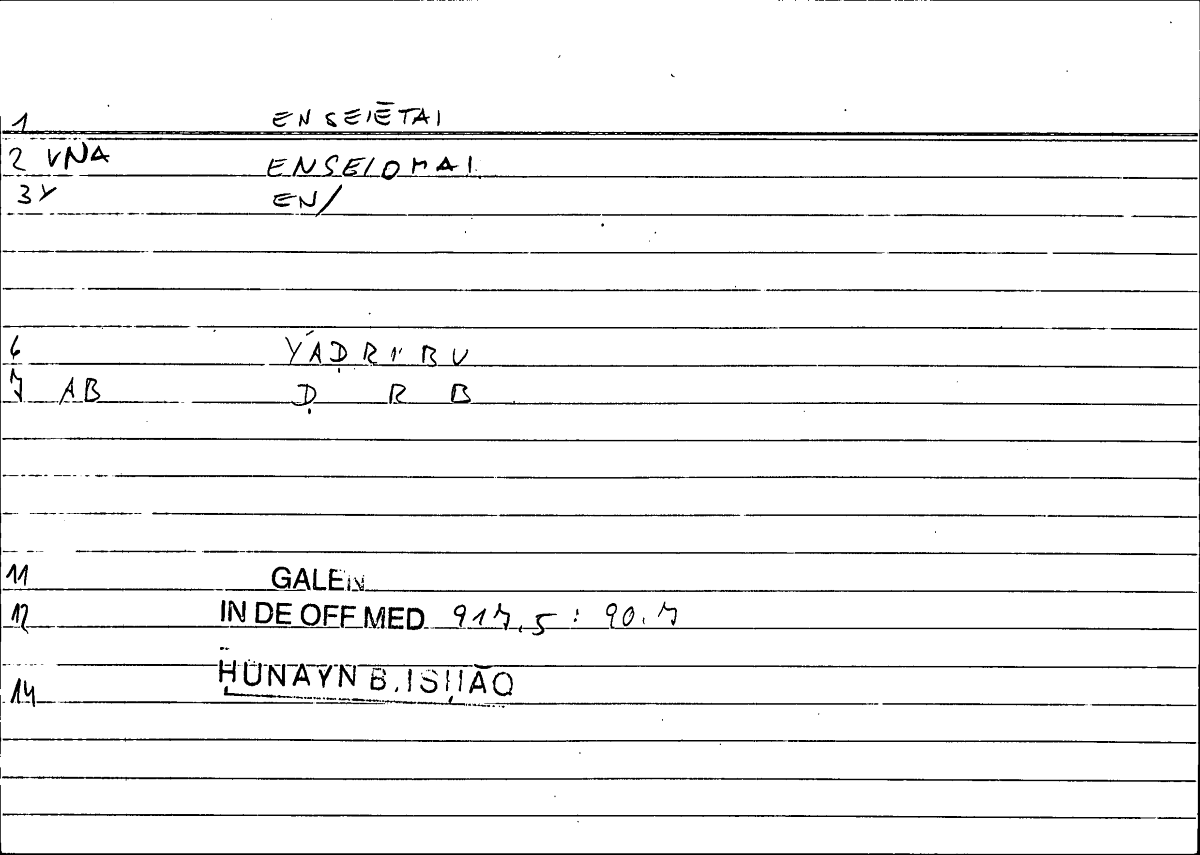 1 ENSEIĒTAI
2 VNA ENSEIOMAI
3Y EN/
6 YAḌRIBU
7 AB Ḍ R B
11 GALEN
12 IN DE OFF MED 917,5 : 90.7
14 ḤUNAYN B. ISḤĀQ